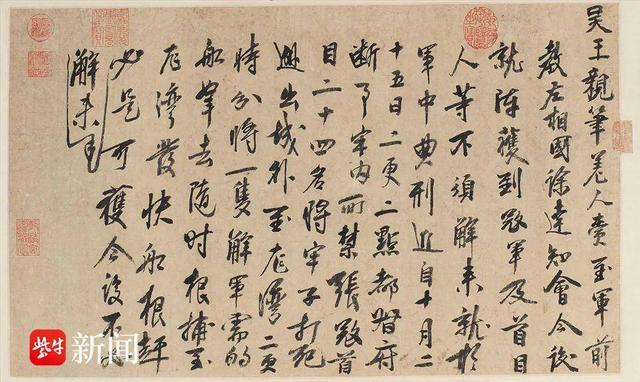 吴王親筆差人賫至軍前
教左相國徐達知會今後
就陣獲到寇軍及首目
人等不須解来就於
軍中典刑近自十月二
十五日二更二點都督府
断了牢内所禁張寇首
目二十四名将牢子打死
越出城外至龙灣二更
時分将一隻解軍需的
船拏去隨時根捕至
龙灣發快船根赶
必是可獲今後不
解来也
紫牛新闻